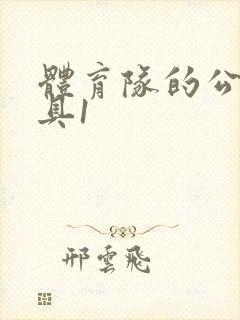 體育隊的公
具1
邢雲飛